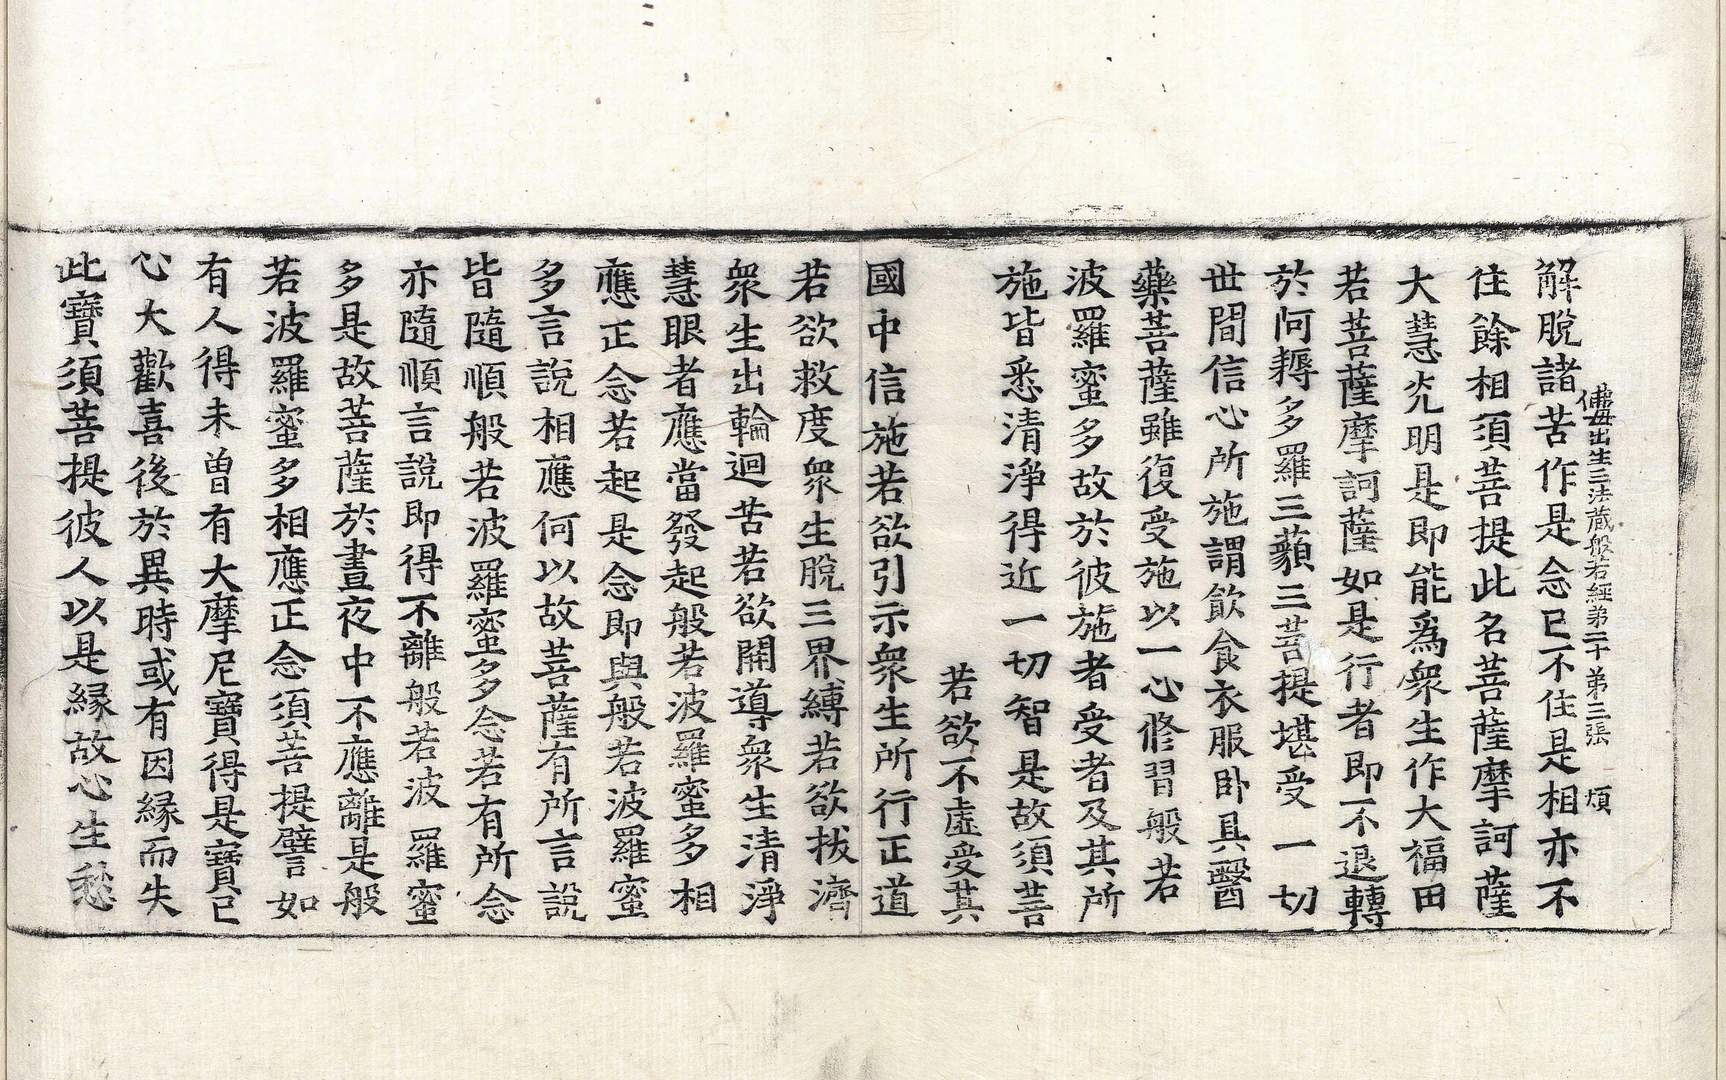 佛母出生三法藏般若經第二十 第三張 煩
解脫諸苦作是念已不住是相亦不
住餘相須菩提此名菩薩摩訶薩
大慧光明是即能爲衆生作大福田
若菩薩摩訶薩如是行者即不退轉
於阿耨多羅三藐三菩提堪受一切
世間信心所施謂飮食衣服卧具醫
藥菩薩雖復受施以一心修習般若
波羅蜜多故於彼施者受者及其所
施皆悉清淨得近一切智是故須菩
若欲不虛受其
國中信施若欲引示衆生所行正道
若欲救度衆生脫三界縛若欲拔濟
衆生出輪迴苦若欲開導衆生清淨
慧眼者應當發起般若波羅蜜多相
應正念若起是念即與般若波羅蜜
多言說相應何以故菩薩有所言說
皆隨順般若波羅蜜多念若有所念
亦隨順言說即得不離般若波羅蜜
多是故菩薩於晝夜中不應離是般
若波羅蜜多相應正念須菩提譬如
有人得未曾有大摩尼寶得是寶已
心大歡喜後於異時或有因緣而失
此寶須菩提彼人以是緣故心生愁